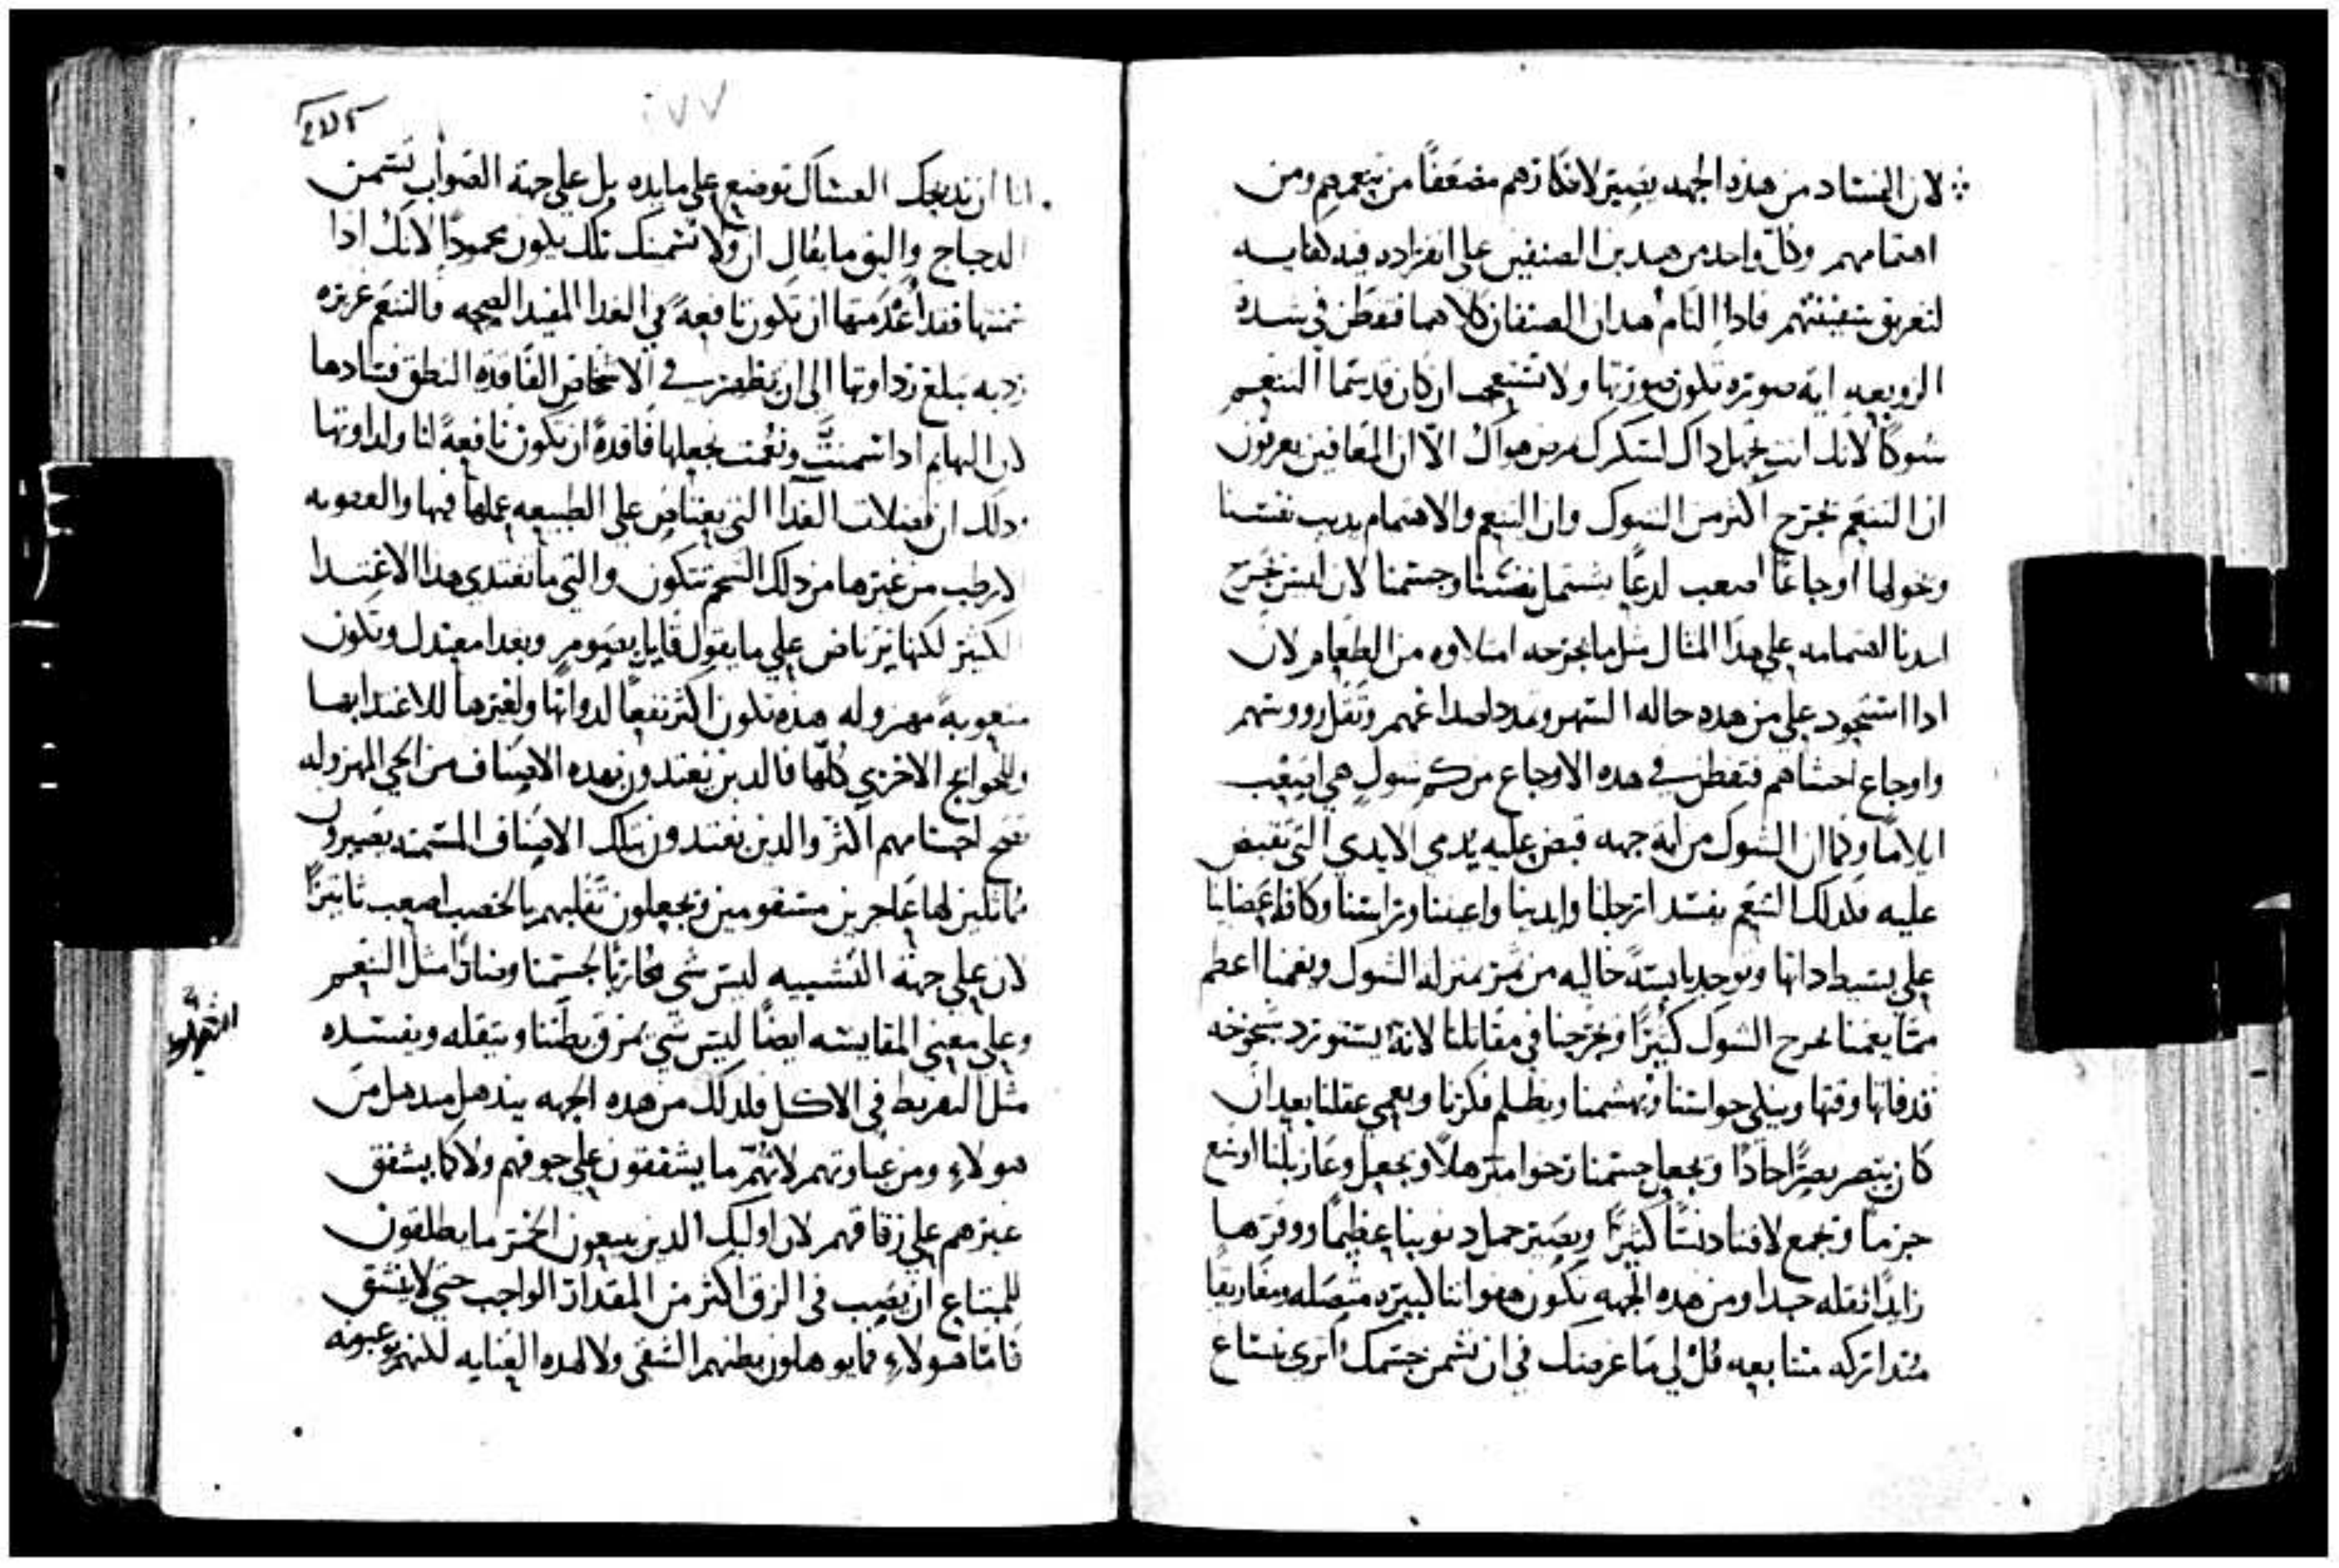 لان الفساد من هذه الجهه يصير لافكارهم مضعفًا من تنعمهم ومن
اهتمامهم وكل واحد من هدين الصنفين على انفراده فيه كفايه
لتغريق سفينتهم فادا التام هدان الصنفان كلاهما فتفطن في شده
الزوبعه ايه صوره تكون صورتها ولا تستعجب ان كان قد سما التنعم
شوكًا لانك انت تجهل داك لسكرك من هواك الا ان المعافين يعرفون
ان التنعم يجرح اكثر من الشوك وان التنعم والاهتمام يديب نفسنا
ويخولها اوجاعًا اصعب لدعًا يشتمل نفسنا وجسمنا لان ليس يجرح
احدنا اهتمامه على هدا المثال مثل ما يجرحه امتلاوه من الطعام لان
ادا استحود على من هده حاله السهر وتمدد اصداغهم وثقل رووسهم
واوجاع احشاهم فتفطن في هده الاوجاع من كم شول هي اصعب
ايلامًا وكما ان الشوك من ايه جهه قبض عليه يدمي الايدي التي تقبض
عليه فلدلك التنعم يفسد ارجلنا وايدينا واعيننا وراسنا وكافه اعضاينا
على بسيط داتها ويوجد يابسة خاليه من ثمر بمنزله الشوك ويغمنا اعظم
مما يغمنا جرح الشوك كثيرًا ويجرحنا في مقاتلنا لانه يستورد شيخوخه
قد فاتها وقتها ويبلي حواسنا ويهشمنا ويظلم فكرنا ويعمي عقلنا بعد ان
كان يبصر بصرًا حادًا ويجعل جسمنا رخوا مترهلًا ويجعل وعا زبلنا اوسع
جرما ويجمع لافنا دنسًا كثيرًا ويصير حمل دنوبنا عظيمًا ووقرها
زايدًا ثقله جدا ومن هده الجهه تكون هفواتنا كبيره متصله ومغاريقنا
متداركه متتابعه قل لي ما غرضك في ان تسمن جسمك اترى نستاع
١٧٧
انا ان ندبحك العساك توضع على مايده بل على جهة الصواب تسمن
الدجاج واليق ما يقال ان ولا تسمنك تلك يكون محمودًا لانك ادا
سمنتها فقد اعدمتها ان تكون نافعةً في الغدا المفيد الصحه فالتنعم غريزه
رديه تبلغ رداوتها الى ان يظهر في الاشخاص الفاقده النطق فسادها
لان البهايم ادا سمنت ونعمت نجعلها فاقدةً ان تكون نافعةً لنا ولداوتها
ودلك ان فضلات الغدا التي يعتاص على الطبيعه عملها فيها والعفونه
الارطب من غيرها من دلك الشحم تتكون والتي ما تغتدي هدا الاغتدا
الكثير لكنها ترتاض على ما يقول قايل بصوم وبغدا معتدل وتكون
متعوبةً مهزوله هده تكون اكثر نفعًا لدواتها ولغيرها للاغتدا بها
وللحوايج الاخرى كلها فالدين يغتدون بهده الاصناف من الحي المهزوله
تصح اجسامهم اكثر والدين يغتدون بتلك الاصناف المسمنه يصيرون
مماثلين لها عاجزين مسقومين ويجعلون ثقلهم بالخصب اصعب تاثيرًا
لان على جهة التشبيه ليس شي محاربًا لجسمنا ومنافرًا مثل التنعم
وعلى معنى المقايسه ايضًا ليس شي يمزق بطننا ويثقله ويفسده
مثل التفريط في الاكل فلدلك من هده الجهه يندهل مندهل من
هولاء ومن غباوتهم لانهم ما يشفقون على جوفهم ولا كما يشفق
غيرهم على زقاقهم لان اوليك الدين يبيعون الخمر ما يطلقون
للمبتاع ان يصب في الزق اكثر من المقدار الواجب حتى لا ينشق
فاما هولاء فما يوهلون بطنهم الشقي ولا لهده العنايه لكنهم يوعبونه